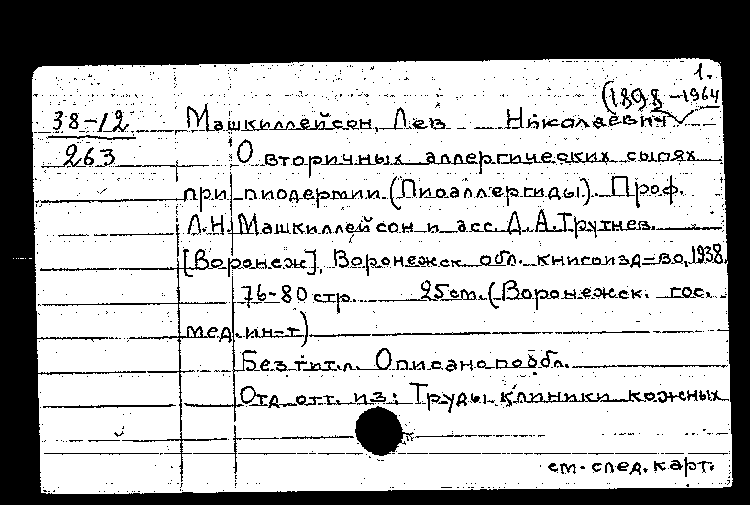 1.
(1898-1964
38-12 Машкиллейсон, Лев Николаевич
263 О вторичных аллергических сыпях
при пиодермии (Пиоаллергиды). Проф.
Л.Н. Машкиллейсон и асс. Д.А. Трутнев.
[Воронеж], Воронежск. обл. книгоизд=во, 1938.
76-80 стр. 25 см. (Воронежск. гос.
мед. ин=т)
Без тит. л. Описано по обл.
Отд. отт. из: Труды клиники кожных
см. след. карт.